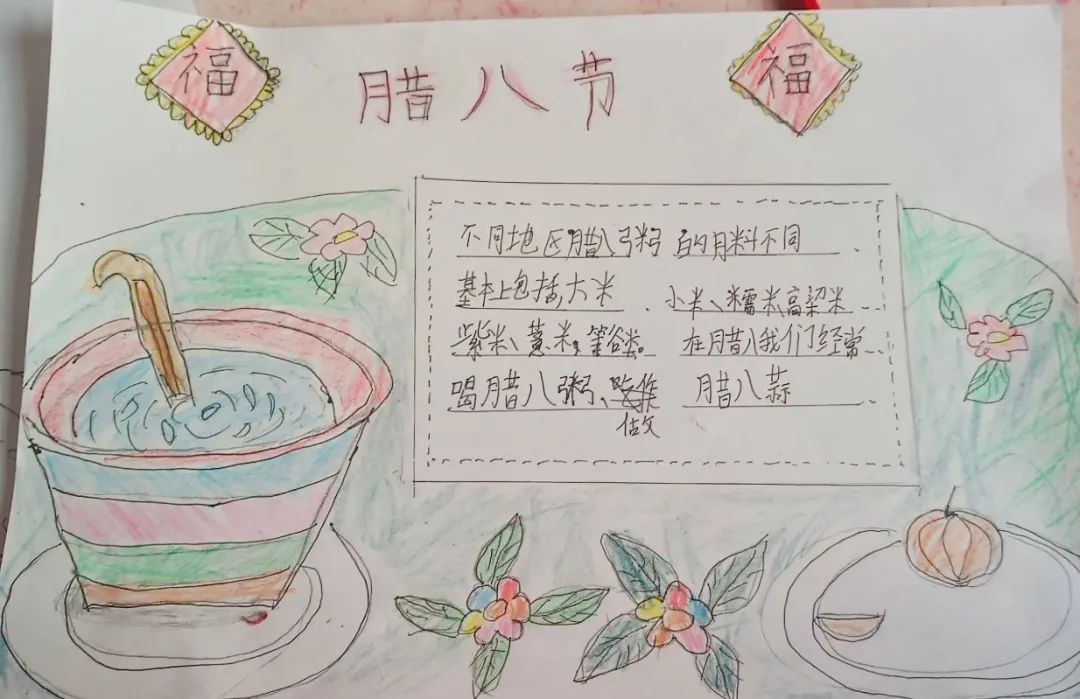 福 腊八节 福
不同地区腊八粥的用料不同
基本上包括大米、小米、糯米高粱米
紫米、薏米，等谷类。在腊八我们经常
喝腊八粥、做腊八蒜